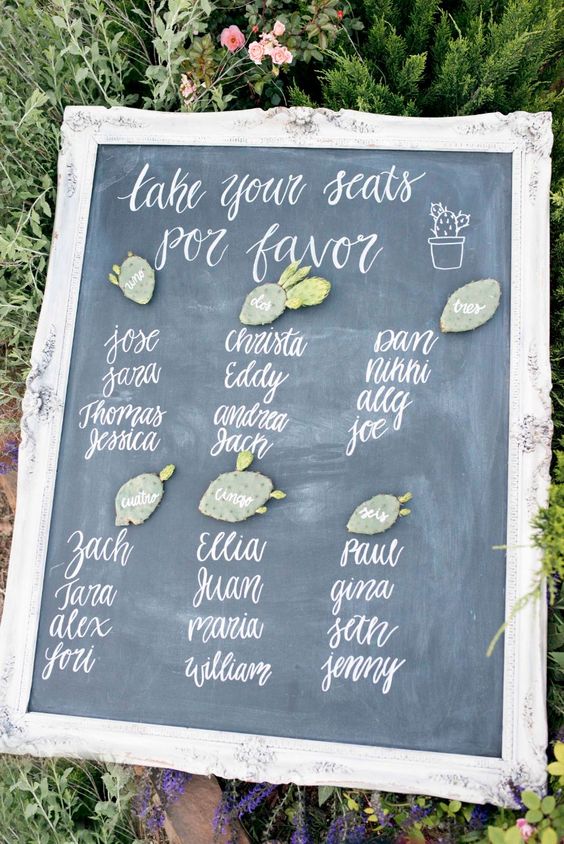 take your seats
por favor
uno
jose
sara
Thomas
Jessica
dos
christa
Eddy
andrea
Jack
tres
Dan
nikki
ally
joe
cuatro
Zach
Tara
alex
Lori
cinqo
Ellia
Juan
maria
William
seis
Paul
gina
seth
jenny